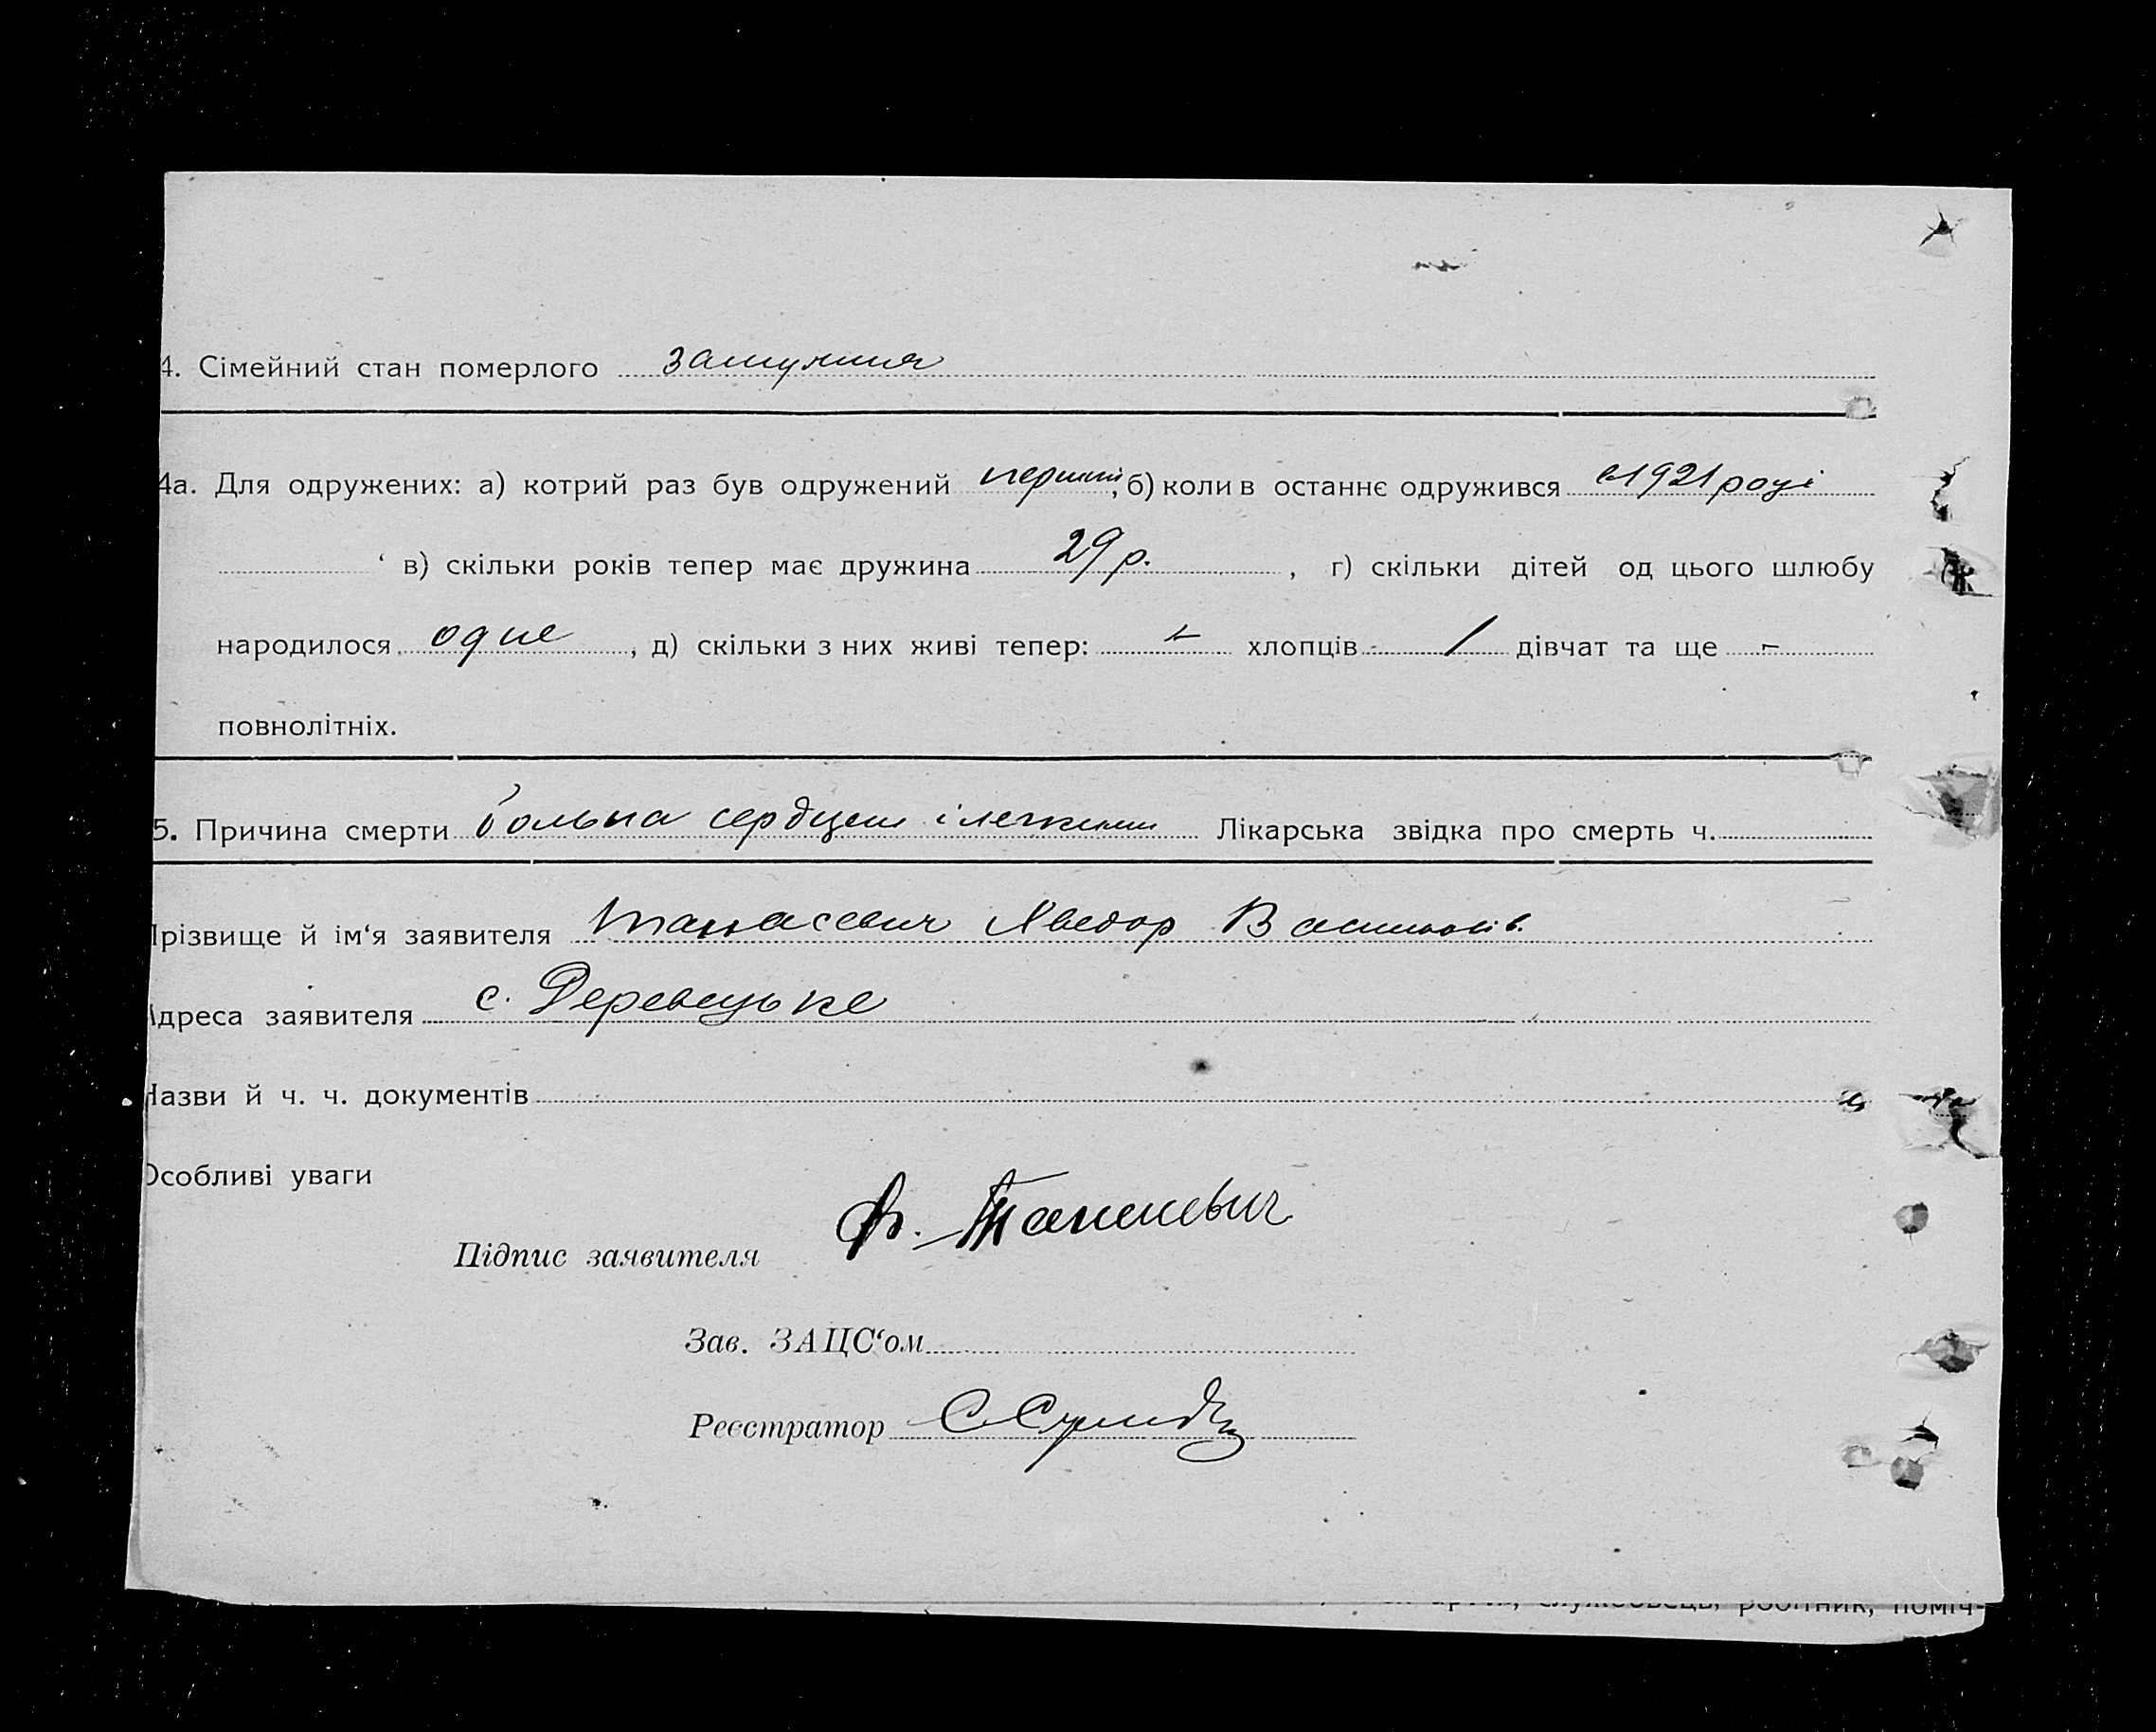 4. Сімейний стан померлого замужня
4а. Для одружених: а) котрий раз був одружений перший, б) коли в останнє одружився в 1921 році
в) скільки років тепер має дружина 29 р., г) скільки дітей од цього шлюбу
народилося одне, д) скільки з них живі тепер: – хлопців 1 дівчат та ще –
повнолітніх.
5. Причина смерти больна сердцем і легкими Лікарська звідка про смерть ч.
Прізвище й ім‘я заявителя Танасевич Хведор Васильов.
Адреса заявителя с. Деревецьке
Назви й ч. ч. документів
Особливі уваги
Підпис заявителя Ф. Танасевич
Зав. ЗАЦС‘ом
Реєстратор
службовець, робітник, поміч-